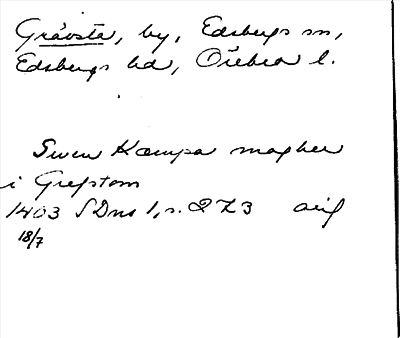 Gråvsta, by, Edsbergs sn,
Edsbergs hd, Örebro l.
Swen Kæmpa magher
i Grefstom
1403 SDns 1, s. 273 orig
18/7